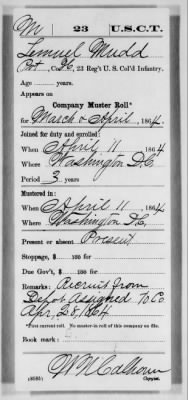 M | 23 | U.S.C.T.
Lemuel Mudd
Pvt., Co. G, 23 Reg't U. S. Col'd Infantry.
Age years.
Appears on
Company Muster Roll*
for March & April, 1864.
Joined for duty and enrolled:
When April 11, 1864
Where Washington D.C.
Period 3 years
Mustered in:
When April 11, 1864
Where Washington D.C.
Present or absent Present
Stoppage, $ 100 for
Due Gov't, $ 100 for
Remarks: Recruit from
Depot Assigned To Co
Apr. 28, 1864
*First current roll. No muster-in roll of this company on file.
Book mark:
W N Calhoun
(858b) Copyist.